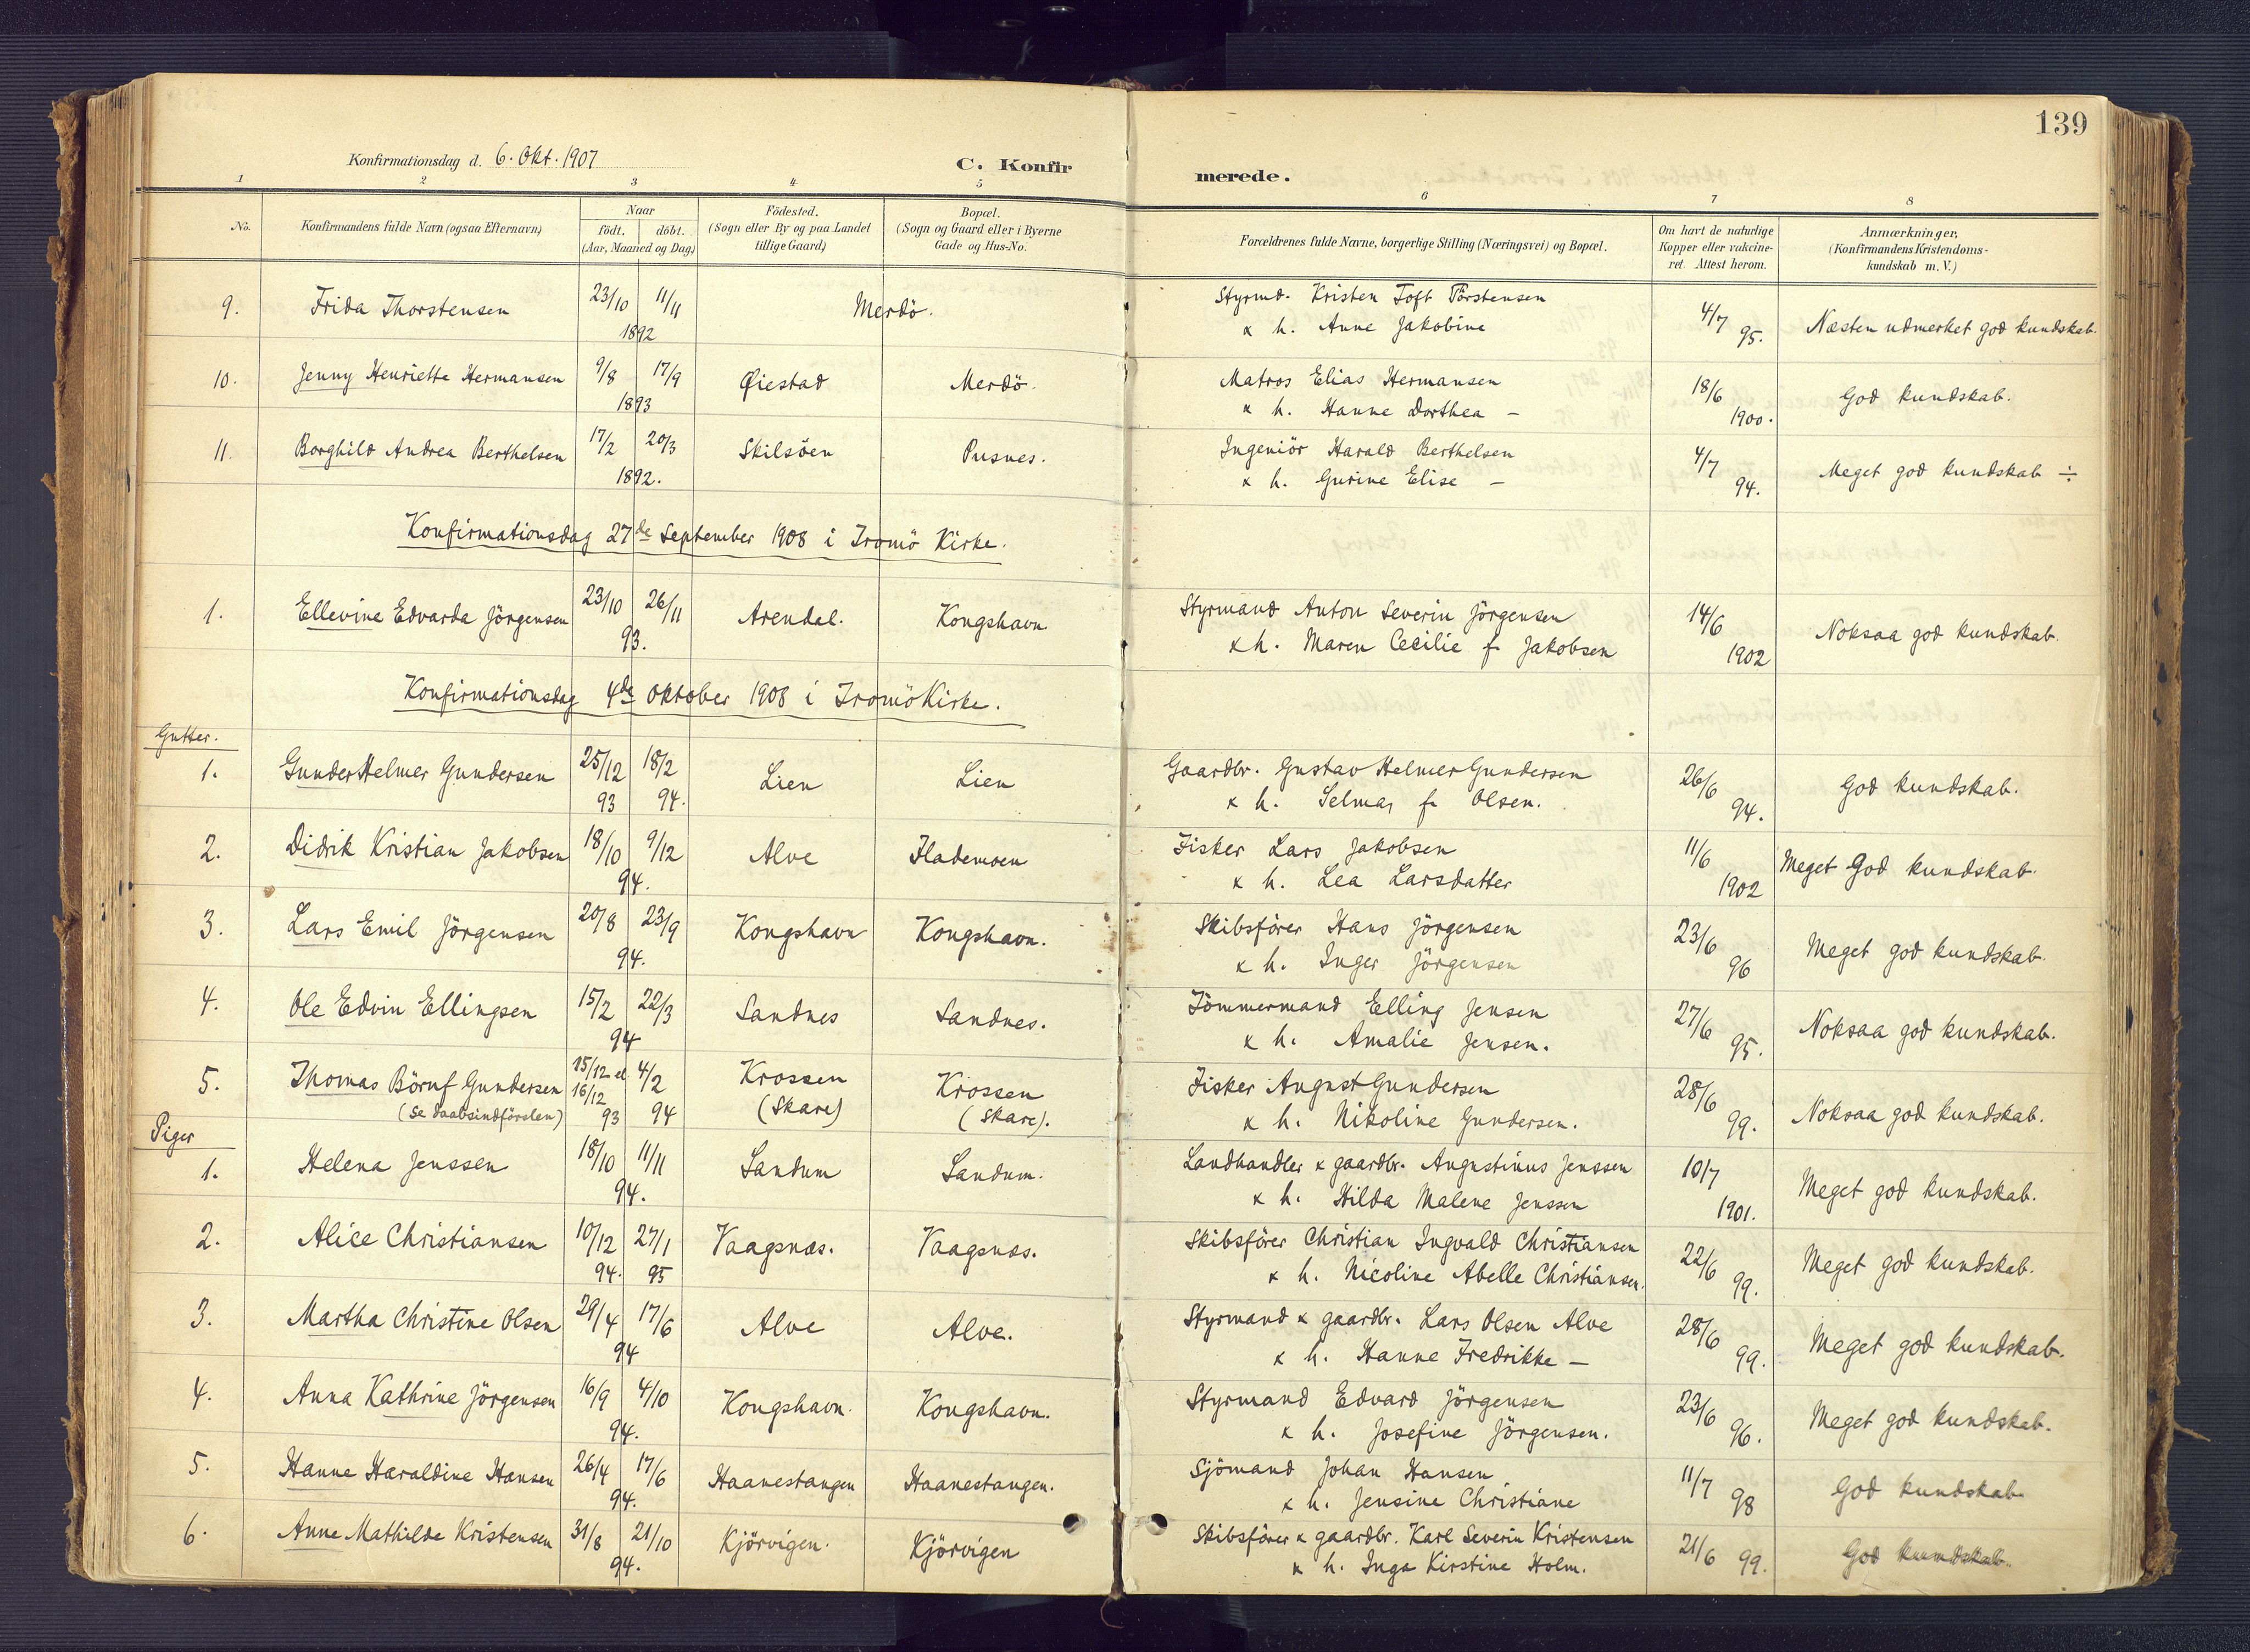 139
Konfirmationsdag d. 6. Okt. 1907
C. Konfirmerede.
1 2 3 4 5 6 7 8
No.
Konfirmandens fulde Navn (ogsaa Efternavn)
Naar
født. døbt.
(Aar, Maaned og Dag)
Fødested.
(Sogn eller By og paa Landet
tillige Gaard)
Bopæl.
(Sogn og Gaard eller i Byerne
Gade og Hus-No.
Forældrenes fulde Navne, borgerlige Stilling (Næringsvei) og Bopæl.
Om havt de naturlige
Kopper eller vakcine-
ret. Attest herom.
Anmærkninger,
(Konfirmandens Kristendoms-
kundskab m. V.)
9. Frida Thorstensen 23/10 11/11 1892 Merdö. Styrmd. Kristen Toft Torstensen
x h. Anne Jakobine 4/7 95. Næsten udmerket god kundskab.
10. Jenny Henriette Hermansen 9/8 17/9 1893 Øiestad Merdö. Matros Elias Hermansen
x h. Hanne Dorthea — 18/6 1900. God kundskab.
11. Borghild Andrea Berthelsen 17/2 20/3 1892. Skilsöen Pusnes. Ingeniör Harald Berthelsen
x h. Gurine Elise — 4/7 94. Meget god kundskab ÷
Konfirmationsdag 27de September 1908 i Tromö Kirke.
1. Ellevine Edvarda Jörgensen 23/10 26/11 93. Arendal. Kongshavn Styrmand Anton Severin Jörgensen
x h. Maren Cecilie f. Jakobsen 14/6 1902 Noksaa god kundskab.
Konfirmationsdag 4de Oktober 1908 i Tromö Kirke.
Gutter.
1. Gunder Helmer Gundersen 25/12 93 18/2 94. Lien Lien Gaardbr. Gustav Helmer Gundersen
x h. Selma f. Olsen. 26/6 94. God kundskab.
2. Didrik Kristian Jakobsen 18/10 9/12 94. Alve Flademoen Fisker Lars Jakobsen
x h. Lea Larsdatter 11/6 1902 Meget God kundskab.
3. Lars Emil Jörgensen 20/8 23/9 94. Kongshavn Kongshavn. Skibsförer Hans Jörgensen
x h. Inger Jörgensen 23/6 96 Meget god kundskab.
4. Ole Edvin Ellingsen 15/2 22/3 94 Sandnes Sandnes. Tömmermand Elling Jensen
x h. Amalie Jensen. 27/6 95. Noksaa god kundskab.
5. Thomas Böruf Gundersen 15/12 el 16/12 93 4/2 94 Krossen (Skare) Krossen (Skare). Fisker August Gundersen
(Se Daabsindförslen) x h. Nikoline Gundersen. 28/6 99. Noksaa god kundskab.
Piger
1. Helena Jenssen 18/10 11/11 94. Sandum Sandum. Landhandler x gaardbr. Augustinus Jenssen
x h. Hilda Malene Jenssen 10/7 1901. Meget god kundskab.
2. Alice Christiansen 10/12 94. 27/1 95 Vaagsnæs. Vaagsnæs. Skibsförer Christian Ingvald Christiansen
x h. Nicoline Abelle Christiansen. 22/6 99. Meget god kundskab.
3. Martha Christine Olsen 29/4 17/6 94 Alve Alve. Styrmand x gaardbr. Lars Olsen Alve
x h. Hanne Fredrikke — 28/6 99. Meget god kundskab.
4. Anna Kathrine Jörgensen 16/9 4/10 94. Kongshavn. Kongshavn. Styrmand Edvard Jörgensen
x h. Josefine Jörgensen. 23/6 96. Meget god kundskab.
5. Hanne Haraldine Hansen 26/4 17/6 94. Haanestangen Haanestangen. Sjömand Johan Hansen
x h. Jensine Christiane 11/7 98 God kundskab
6. Anne Mathilde Kristensen 31/8 21/10 94. Kjörvigen. Kjörvigen Skibsförer x gaardbr. Karl Severin Kristensen
x h. Inga Kirstine Holm. 21/6 99. God kundskab.